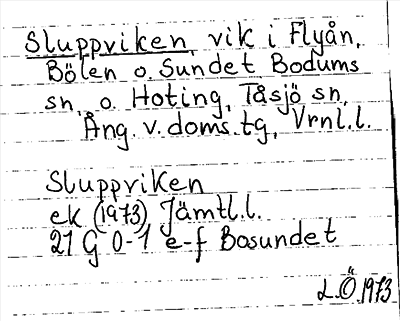 Sluppviken, vik i Flyån,
Bölen o. Sundet Bodums
sn. o. Hoting, Tåsjö sn,
Ång. v. doms. tg, Vrnl.l.
Sluppviken
ek (1973) Jämtl.l.
21 G 0-1 e-f Bosundet
L.Ö.1973